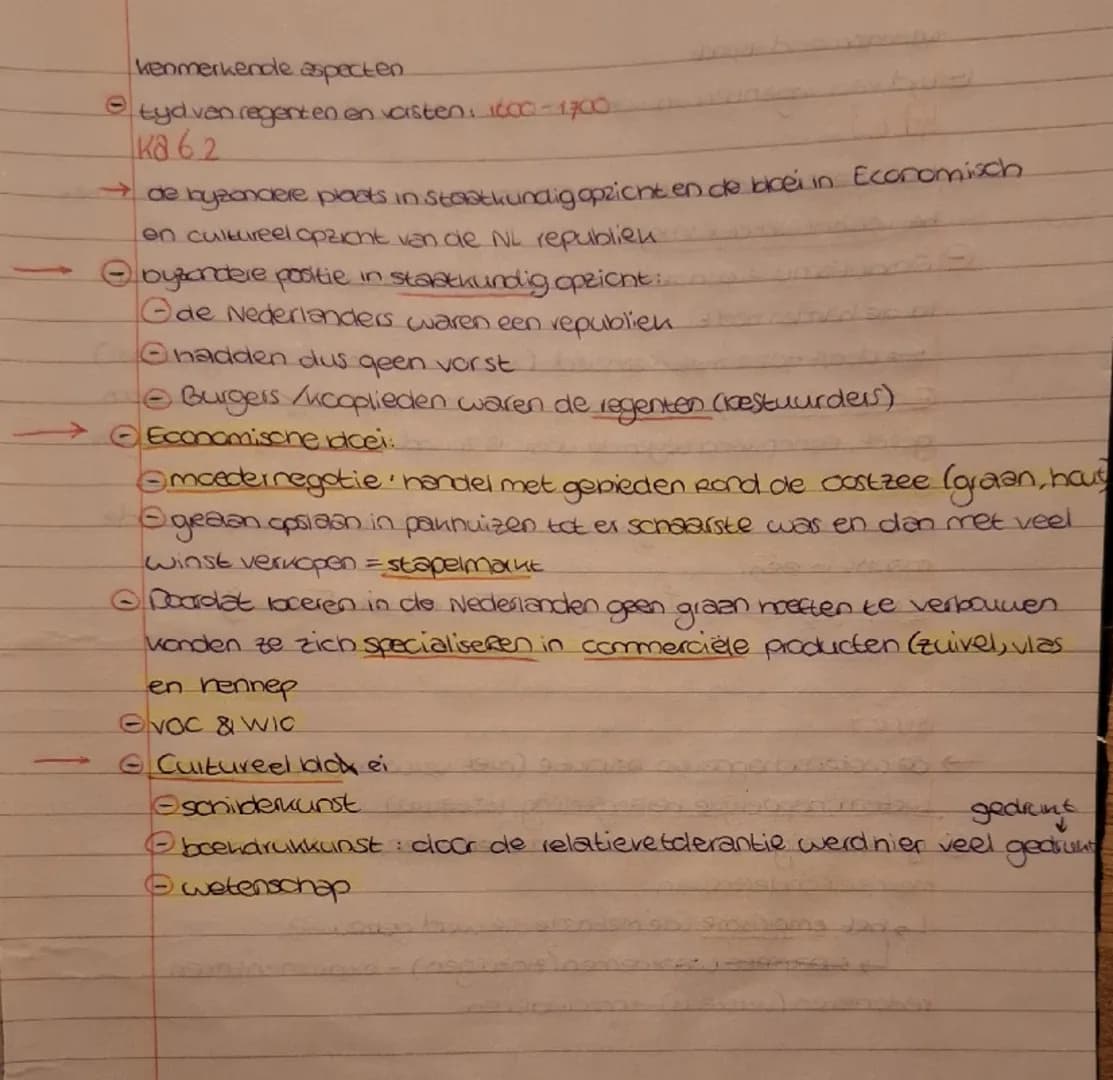 kenmerkende aspecten
⊖ tijd van regenten en vorsten: 1600-1700
Ka 6.2
→ de byzondere plaats in staatkundig opzicht en de bloei in Economisch
en cultureel opzicht van de NL republiek
→ ⊖ byzondere positie in staatkundig opzicht:
⊖ de Nederlanders waren een republiek
⊖ hadden dus geen vorst
⊖ Burgers / kooplieden waren de regenten (bestuurders)
→ ⊖ Economische bloei:
⊖ moedernegotie: handel met gebieden rond de oostzee (graan, hout
⊖ graan opslaan in pakhuizen tot er schaarste was en dan met veel
winst verkopen = stapelmarkt
⊖ Doordat boeren in de Nederlanden geen graan hoefden te verbouwen
konden ze zich specialiseren in commerciële producten (zuivel, vlas
en hennep
⊖ VOC & WIC
→ ⊖ Cultureel bloei
⊖ schilderkunst
gedrukt
⊖ boekdrukkunst: door de relatieve tolerantie werd hier veel gedrukt
⊖ wetenschap